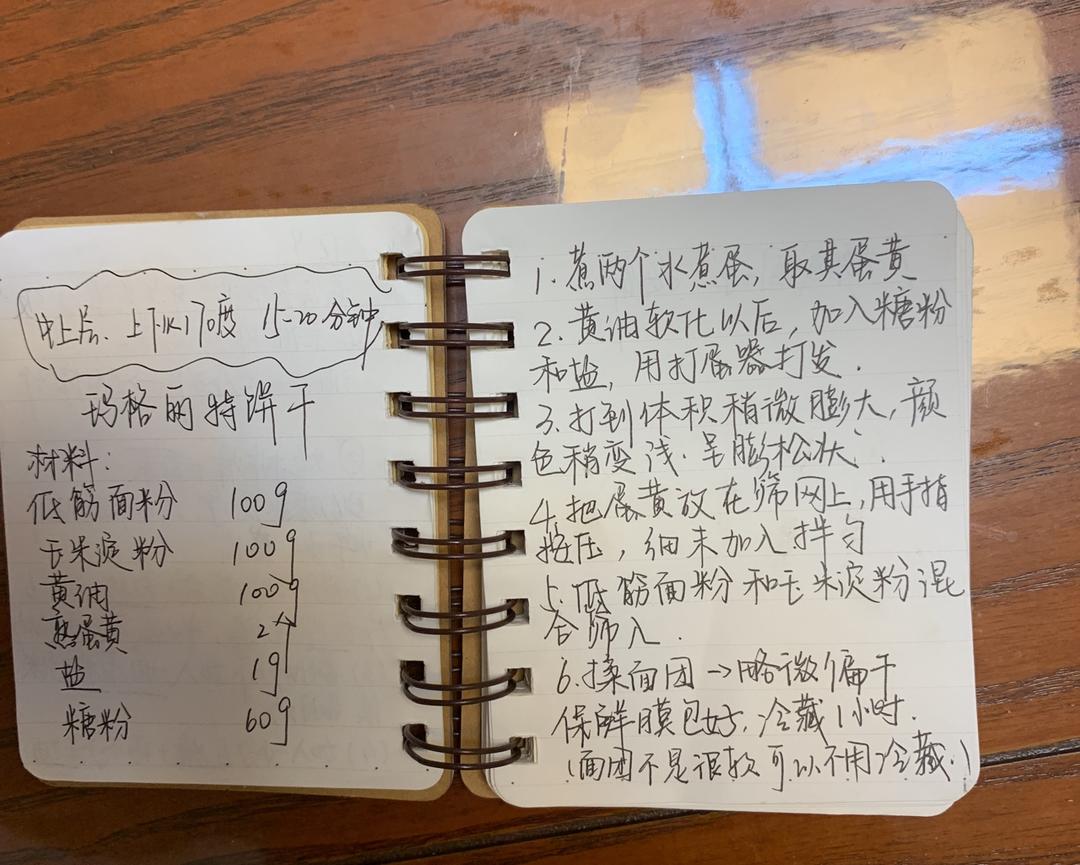 中上层、上下火170度 15-20分钟
玛格丽特饼干
材料:
低筋面粉 100g
玉米淀粉 100g
黄油 100g
熟蛋黄 2个
盐 1g
糖粉 60g
1.煮两个水煮蛋,取其蛋黄
2.黄油软化以后,加入糖粉
和盐,用打蛋器打发.
3.打到体积稍微膨大,颜
色稍变浅.呈膨松状.
4.把蛋黄放在筛网上,用手指
挤压,细末加入拌匀
5.低筋面粉和玉米淀粉混
合筛入.
6.揉面团→略微偏干
保鲜膜包好,冷藏1小时.
(面团不是很软可以不用冷藏.)